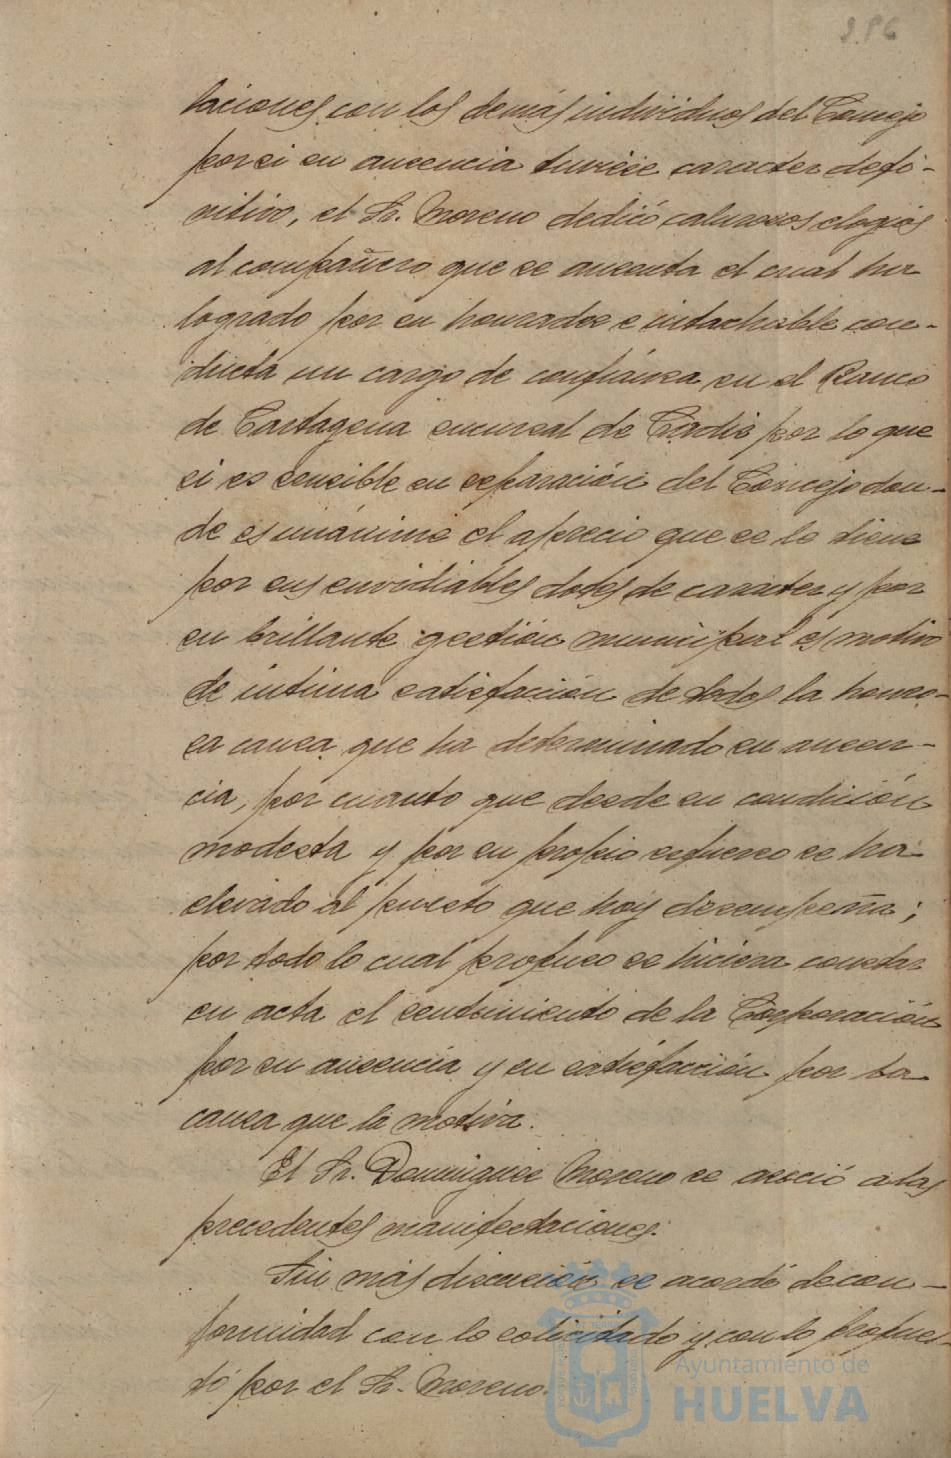 laciones con los demás individuos del Concejo
por si su ausencia tuviese caracter defi-
nitivo, el Sr. Moreno dedicó calurosos elogios
al compañero que se ausenta el cual ha
logrado por su honradez e intachable con-
ducta un cargo de confianza en el Banco
de Cartagena sucursal de Cadiz por lo que
si es sensible su separación del Concejo don-
de es unánime el aprecio que se le tiene
por sus envidiables dotes de caracter y por
su brillante gestión municipal es motivo
de intima satisfacción de todos la honro-
sa causa que ha determinado su ausen-
cia, por cuanto que desde su condición
modesta y por su propio esfuerzo se ha
elevado al puesto que hoy desempeña;
por todo lo cual propuso se hiciera constar
en acta el sentimiento de la Corporación
por su ausencia y su satisfacción por la
causa que la motiva.
El Sr. Dominguez Moreno se asoció a las
precedentes manifestaciones.
Sin más discusión se acordó de con-
formidad con lo solicitado y con lo propues-
to por el Sr. Moreno.
Ayuntamiento de
HUELVA